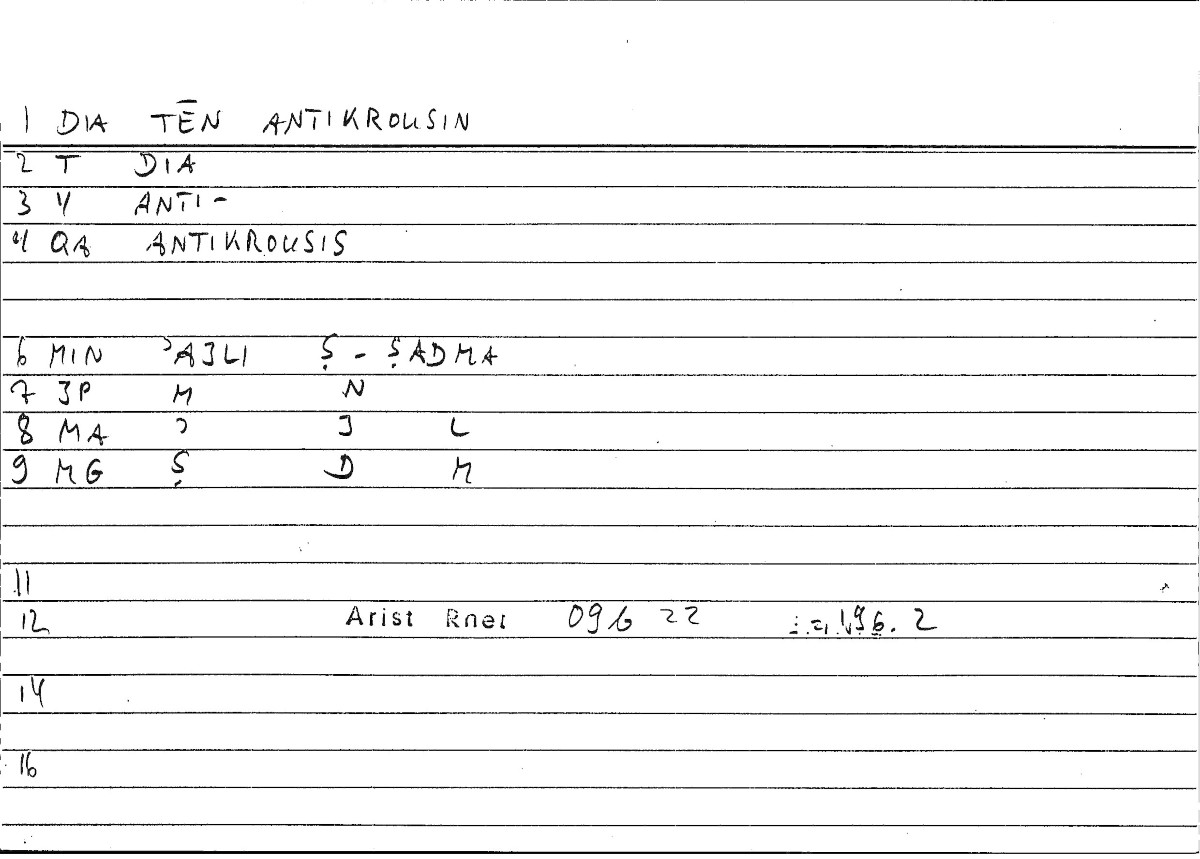 1 DIA TĒN ANTIKROUSIN
2 T DIA
3 4 ANTI-
4 QA ANTIKROUSIS
6 MIN ʾAJLI Ṣ - ṢADMA
7 JP M N
8 MA ʾ J L
9 MG Ṣ D M
11
12 Arist Rhet 096 22 196. 2
14
16